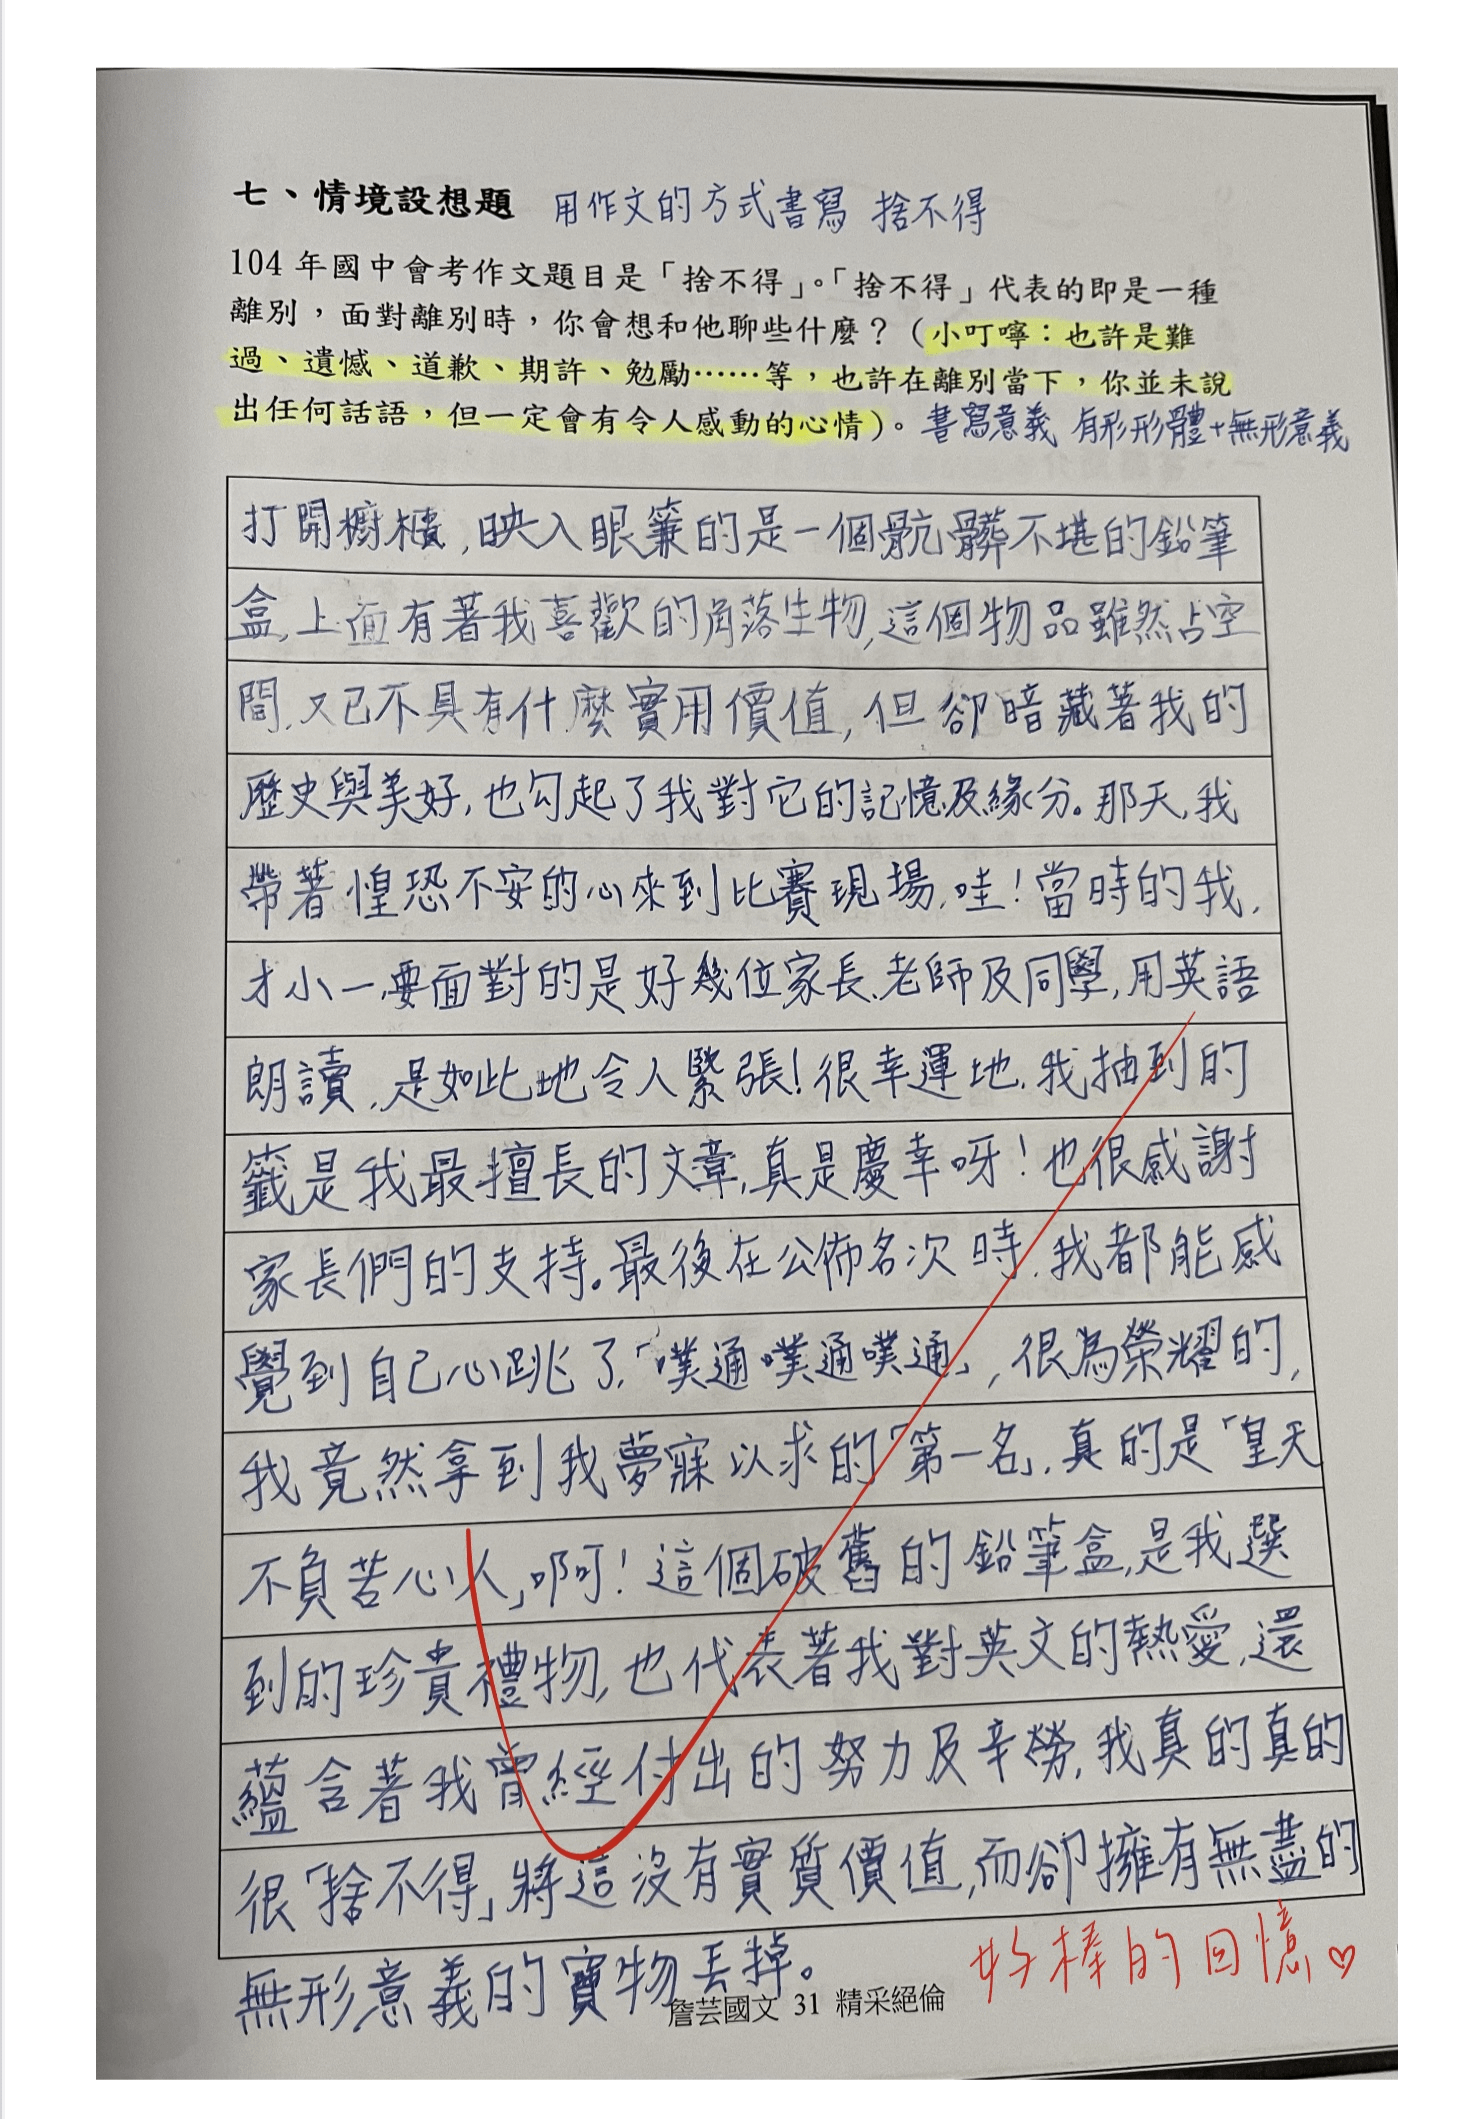 七、情境設想題 用作文的方式書寫 捨不得
104 年國中會考作文題目是「捨不得」。「捨不得」代表的即是一種
離別，面對離別時，你會想和他聊些什麼？（小叮嚀：也許是難
過、遺憾、道歉、期許、勉勵……等，也許在離別當下，你並未說
出任何話語，但一定會有令人感動的心情）。書寫意義 有形形體+無形意義
打開櫥櫃,映入眼簾的是一個骯髒不堪的鉛筆
盒,上面有著我喜歡的角落生物,這個物品雖然占空
間,又已不具有什麼實用價值,但卻暗藏著我的
歷史與美好,也勾起了我對它的記憶及緣分。那天,我
帶著惶恐不安的心來到比賽現場,哇!當時的我,
才小一,要面對的是好幾位家長、老師及同學,用英語
朗讀,是如此地令人緊張!很幸運地,我抽到的
籤是我最擅長的文章,真是慶幸呀!也很感謝
家長們的支持。最後在公佈名次時,我都能感
覺到自己心跳了,「噗通噗通噗通」,很為榮耀的,
我竟然拿到我夢寐以求的「第一名」,真的是「皇天
不負苦心人」啊!這個破舊的鉛筆盒,是我選
到的珍貴禮物,也代表著我對英文的熱愛,還
蘊含著我曾經付出的努力及辛勞,我真的真的
很「捨不得」將這沒有實質價值,而卻擁有無盡的
無形意義的寶物丟掉。
好棒的回憶♡
詹芸國文 31 精采絕倫